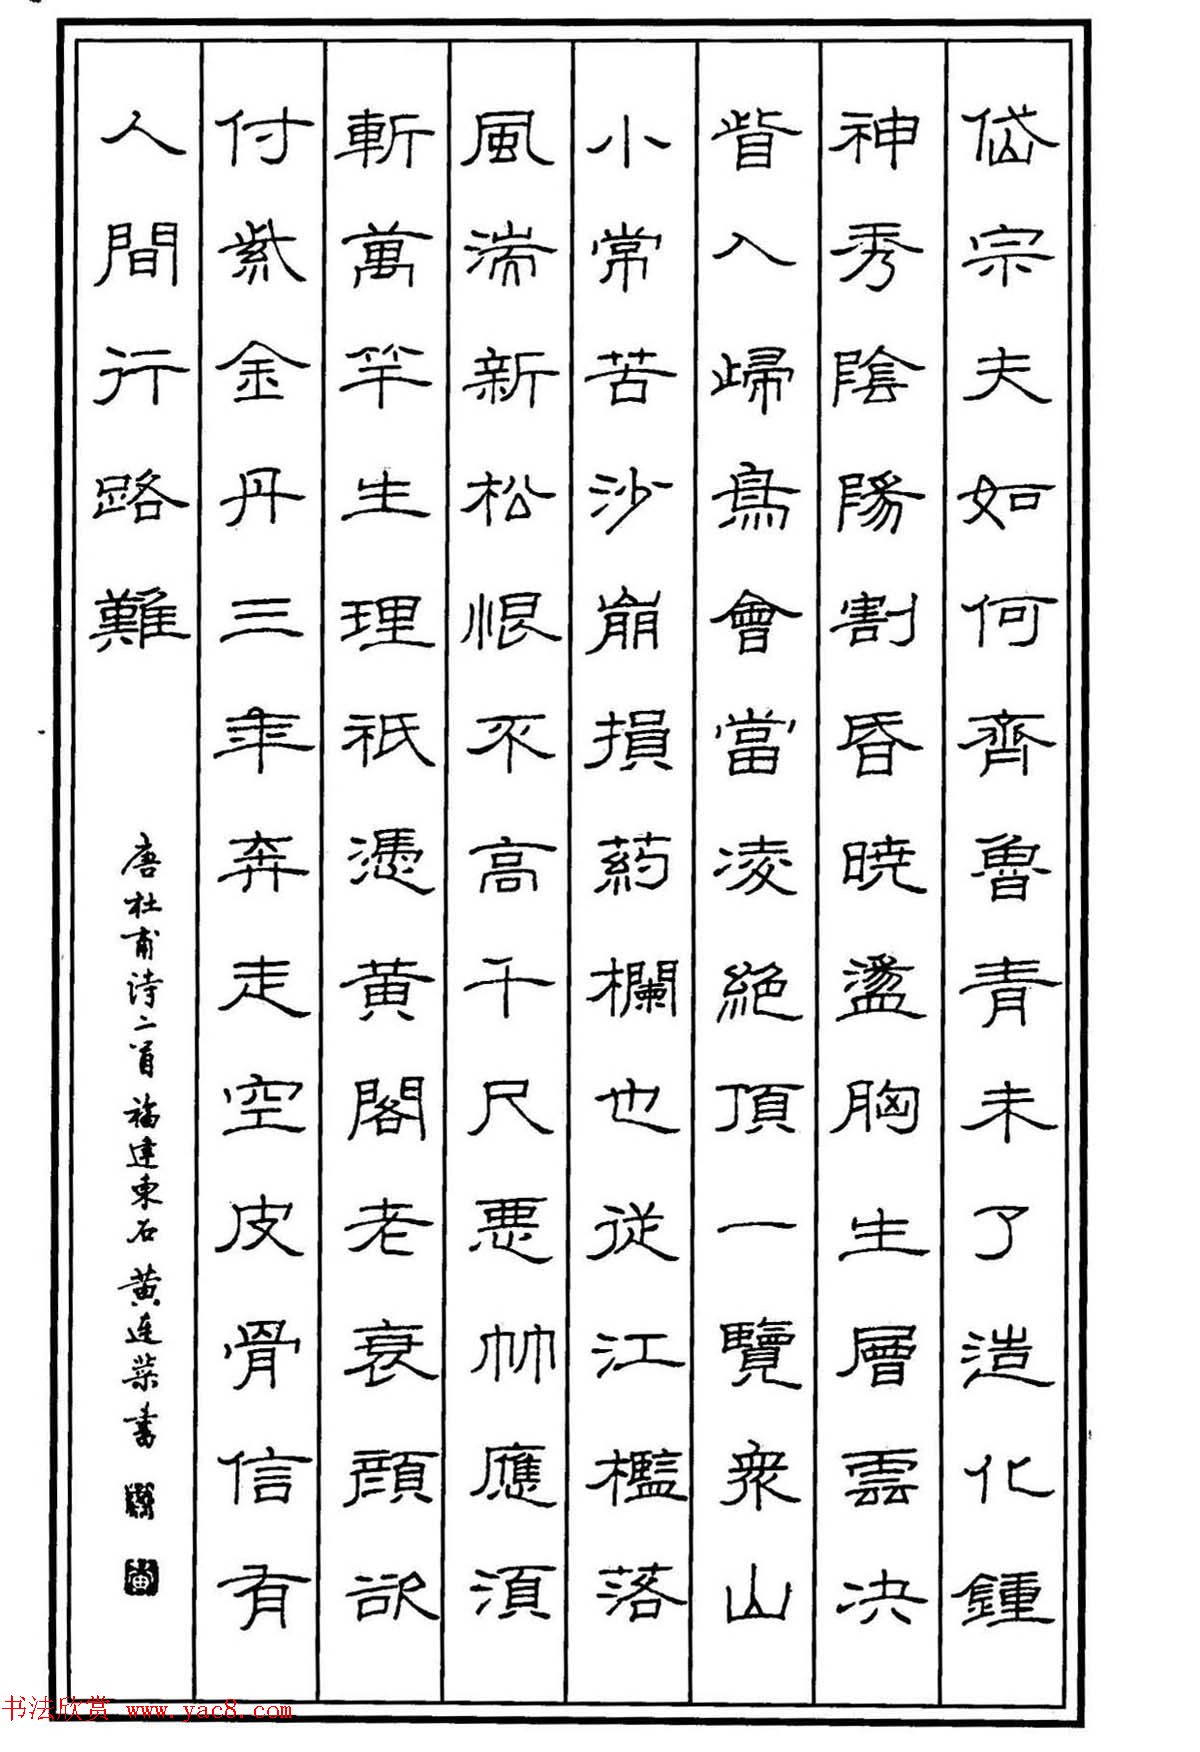 岱宗夫如何齊魯青未了造化鍾
神秀陰陽割昏曉盪胸生層雲決
眥入歸鳥會當凌絕頂一覽衆山
小常苦沙崩損葯欄也從江檻落
風湍新松恨不高千尺惡竹應須
斬萬竿生理祇憑黃閣老衰顏欲
付紫金丹三年奔走空皮骨信有
人間行路難
唐杜甫詩二首 福建東石 黃連葉書
书法欣赏 www.yac8.com